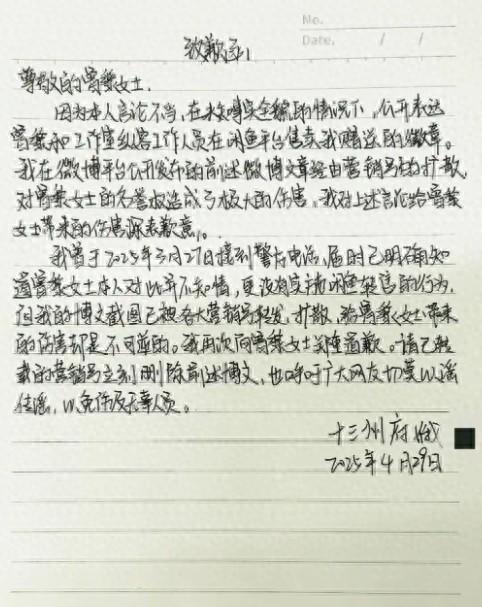 No.
Date. / /
致歉函
尊敬的曾黎女士:
因为本人言论不当,在未知事实全貌的情况下,公开表达
曾黎和工作室纵容工作人员在闲鱼平台售卖我赠送的徽章。
我在微博平台公开发布的前述微博文章经由营销号的扩散,
对曾黎女士的名誉权造成了极大的伤害,我对上述言论给曾黎
女士带来的伤害深表歉意。
我曾于2025年3月27日接到警方电话,届时已明确知
道曾黎女士本人对此并不知情,更没有实施闲鱼转售的行为,
但我的博文截图已被各大营销号转发、扩散,给曾黎女士带来
的伤害却是不可逆的。我再次向曾黎女士郑重道歉。请已转
载的营销号立刻删除前述博文,也呼吁广大网友切莫以谣
传谣,以免伤及无辜人员。
十三州府
2025年4月29日